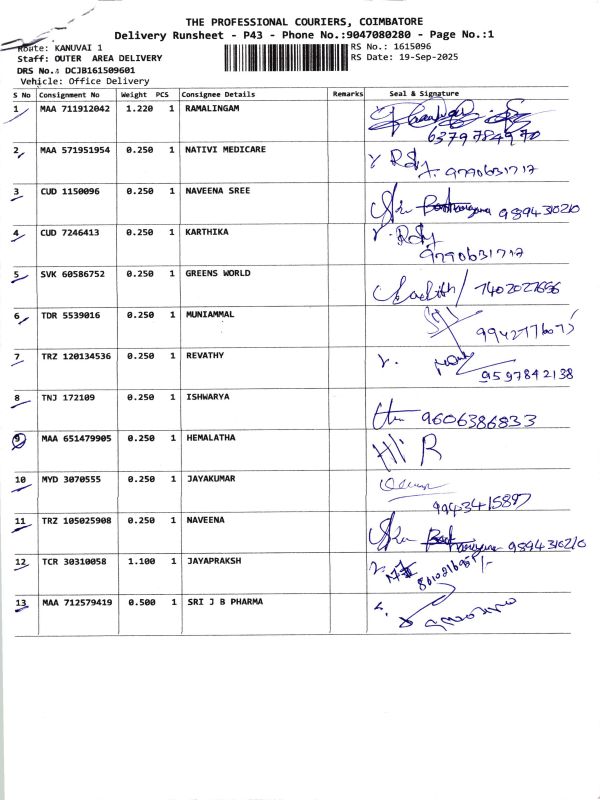 THE PROFESSIONAL COURIERS, COIMBATORE
Delivery Runsheet - P43 - Phone No.:9047080280 - Page No.:1
Route: KANUVAI 1 RS No.: 1615096
Staff: OUTER AREA DELIVERY RS Date: 19-Sep-2025
DRS No.: DCJB161509601
Vehicle: Office Delivery
S No Consignment No Weight PCS Consignee Details Remarks Seal & Signature
1 MAA 711912042 1.220 1 RAMALINGAM
6379784970
2 MAA 571951954 0.250 1 NATIVI MEDICARE
9790631717
3 CUD 1150096 0.250 1 NAVEENA SREE 9894310210
4 CUD 7246413 0.250 1 KARTHIKA
9790631717
5 SVK 60586752 0.250 1 GREENS WORLD 7402027666
6 TDR 5539016 0.250 1 MUNIAMMAL
7 TRZ 120134536 0.250 1 REVATHY
9597842138
8 TNJ 172109 0.250 1 ISHWARYA 9606386833
9 MAA 651479905 0.250 1 HEMALATHA
10 MYD 3070555 0.250 1 JAYAKUMAR
9943415897
11 TRZ 105025908 0.250 1 NAVEENA 9894310210
12 TCR 30310058 1.100 1 JAYAPRAKSH
13 MAA 712579419 0.500 1 SRI J B PHARMA